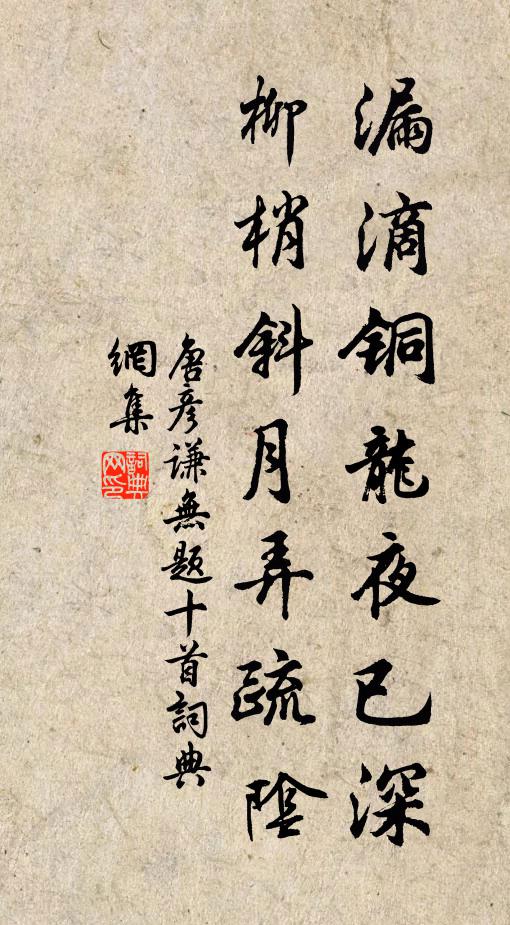 漏滴铜龍夜已深
柳梢斜月弄疏陰
唐彥谦無題十首詞典
網集
詞典網印